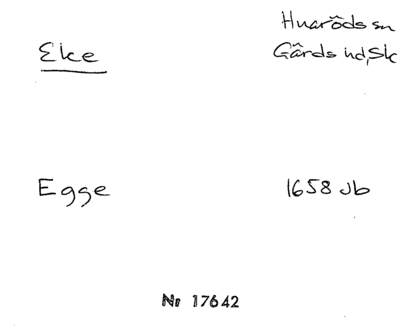 Huaröds sn
Eke Gärds hd, Sk
Egge 1658 Jb
Nr 17642